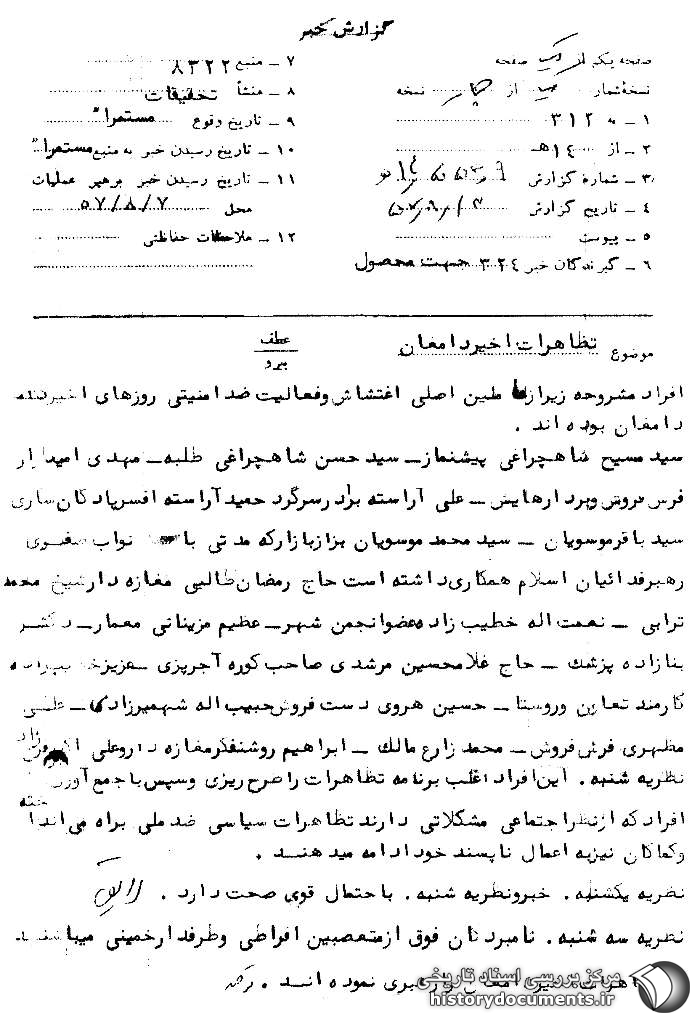 گزارش خبر
صفحه یک از یک صفحه
نسخه شماره از چهار نسخه
۱ - به ۳۱۲
۲ - از ۱۴هـ
۳ - شماره گزارش
۴ - تاریخ گزارش
۵ - پیوست
۶ - گیرندگان خبر ۳۲۴ جهت محصول
۷ - منبع ۸۳۲۲
۸ - منشأ تحقیقات
۹ - تاریخ وقوع مستمرا"
۱۰ - تاریخ رسیدن خبر به منبع مستمرا"
۱۱ - تاریخ رسیدن خبر برهبر عملیات
محل ۵۷/۸/۷
۱۲ - ملاحظات حفاظتی
موضوع تظاهرات اخیر دامغان
عطف
پیرو
افراد مشروحه زیر از عاملین اصلی اغتشاش وفعالیت ضد امنیتی روزهای اخیر
دامغان بوده اند .
سید مسیح شاهچراغی پیشنماز ـ سید حسن شاهچراغی طلبه ـ مهدی
فرش فروش وبرادرهایش ـ علی آراسته برادرسرگرد حمید آراسته افسرپادگان ساری
سید باقرموسویان ـ سید محمد موسویان بزازبازارکه مدتی با نواب صفوی
رهبرفدائیان اسلام همکاری داشته است حاج رمضان طالبی مغازه دارشیخ محمد
ترابی ـ نعمت اله خطیب زاده عضوانجمن شهر ـ عظیم مزینانی معمار ـ دکتر
بنازاده پزشک ـ حاج غلامحسین مرشدی صاحب کوره آجرپزی ـ
کارمند تعاون وروستا ـ حسین هروی دست فروش حبیب اله شهمیرزادی ـ علی
مظهری فرش فروش ـ محمد زارع مالک ـ ابراهیم روشنفکرمغازه داروعلی
نظریه شنبه . این افراد اغلب برنامه تظاهرات را طرح ریزی وسپس با جمع آوری
افرادکه ازنظراجتماعی مشکلاتی دارند تظاهرات سیاسی ضدملی براه می اندا
خته
وکماکان نیزبه اعمال ناپسند خود ادامه میدهند .
نظریه یکشنبه . خبرونظریه شنبه . با احتمال قوی صحت دارد .
نظریه سه شنبه . نامبردگان فوق ازمتعصبین افراطی وطرفدارخمینی میباشند
رهبری نموده اند .
مرکز بررسی اسناد تاریخی
historydocuments.ir